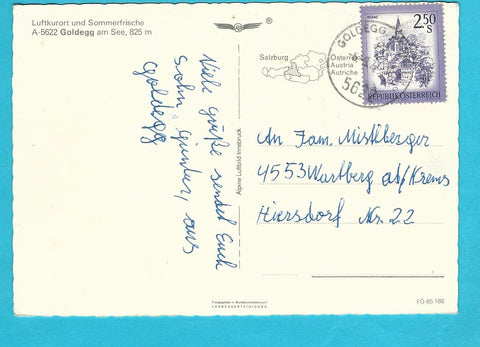 Luftkurort und Sommerfrische
A-5622 Goldegg am See, 825 m
Viele Grüße sendet Euch
Sohn, Günter, aus
Goldegg
Alpine Luftbild Innsbruck
Salzburg
Österreich
Austria
Autriche
GOLDEGG
5622
2.50
S
REPUBLIK ÖSTERREICH
An Fam. Mistlberger
4553 Wartberg ob/Krems
Hiersdorf Nr. 22
Freigegeben v. Bundesministerium f.
LANDESVERTEIDIGUNG
FO 65 188